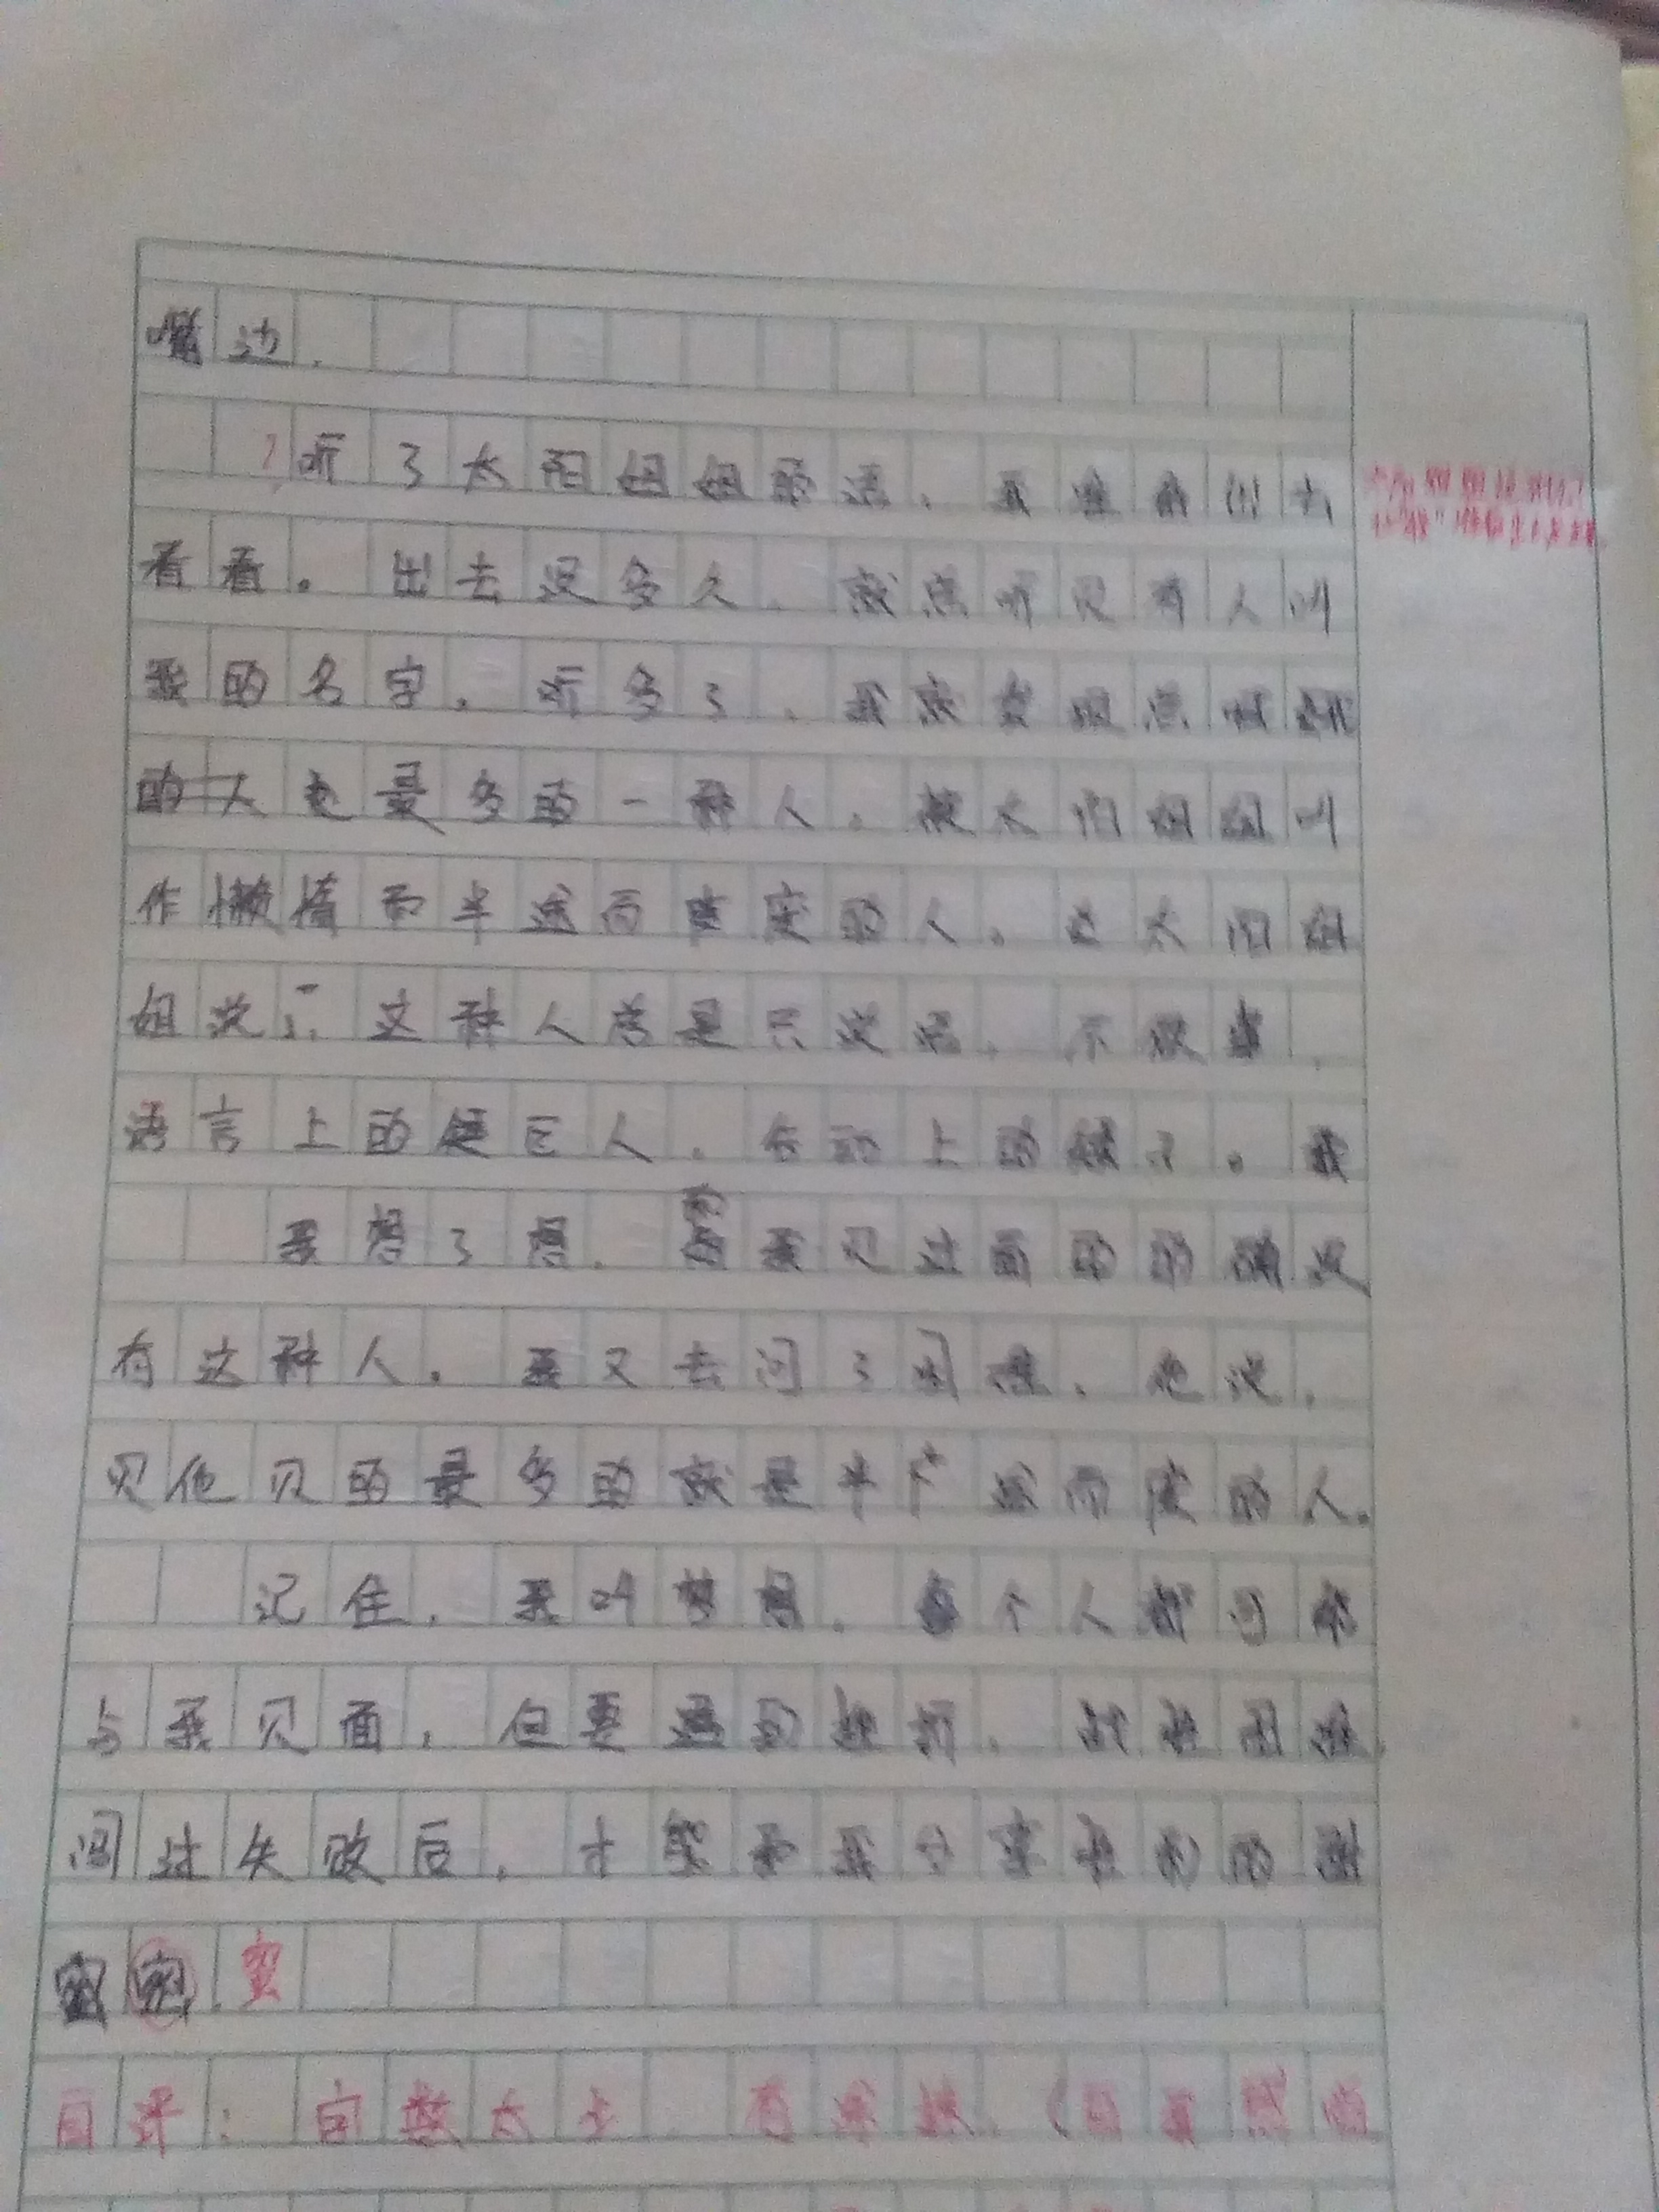 嘴边.
听了太阳姐姐的话,我准备出去
看看。出去没多久,就总听见有人叫
我的名字,听多了,我就发现总叫我
的人也最多的一种人。被太阳姐姐叫
作懒惰和半途而废的人。太阳姐
姐说:"这种人总是只说话,不做事,
语言上的巨人,行动上的矮子。
我想了想,我见过面的的确没
有这种人。我又去问了困难,他说,
见他见的最多的就是半途而废的人.
记住,我叫梦想,每个人都可能
与我见面,但要遇到挫折,战胜困难,
闯过失败后,才能和我分享胜利的甜
蜜
自评:字数太少,有涂改,(自我感